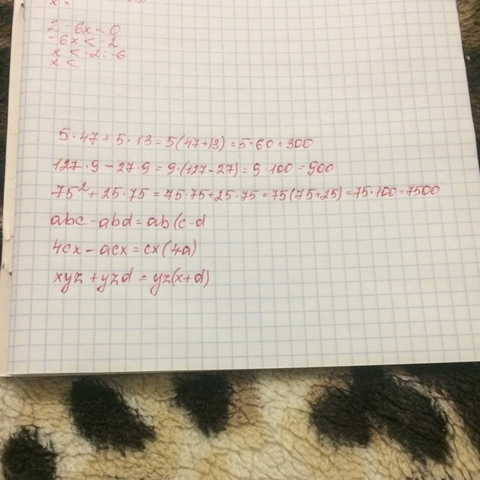 x =
2 - 6x < 0
-6x < -2
x < -2 : -6
x <
5·47 + 5·13 = 5(47+13) = 5·60 = 300
127·9 - 27·9 = 9·(127-27) = 9·100 = 900
75² + 25·75 = 75·75+25·75 = 75(75+25) = 75·100 = 7500
abc - abd = ab(c-d
4cx - acx = cx(4a)
xyz + yzd = yz(x+d)